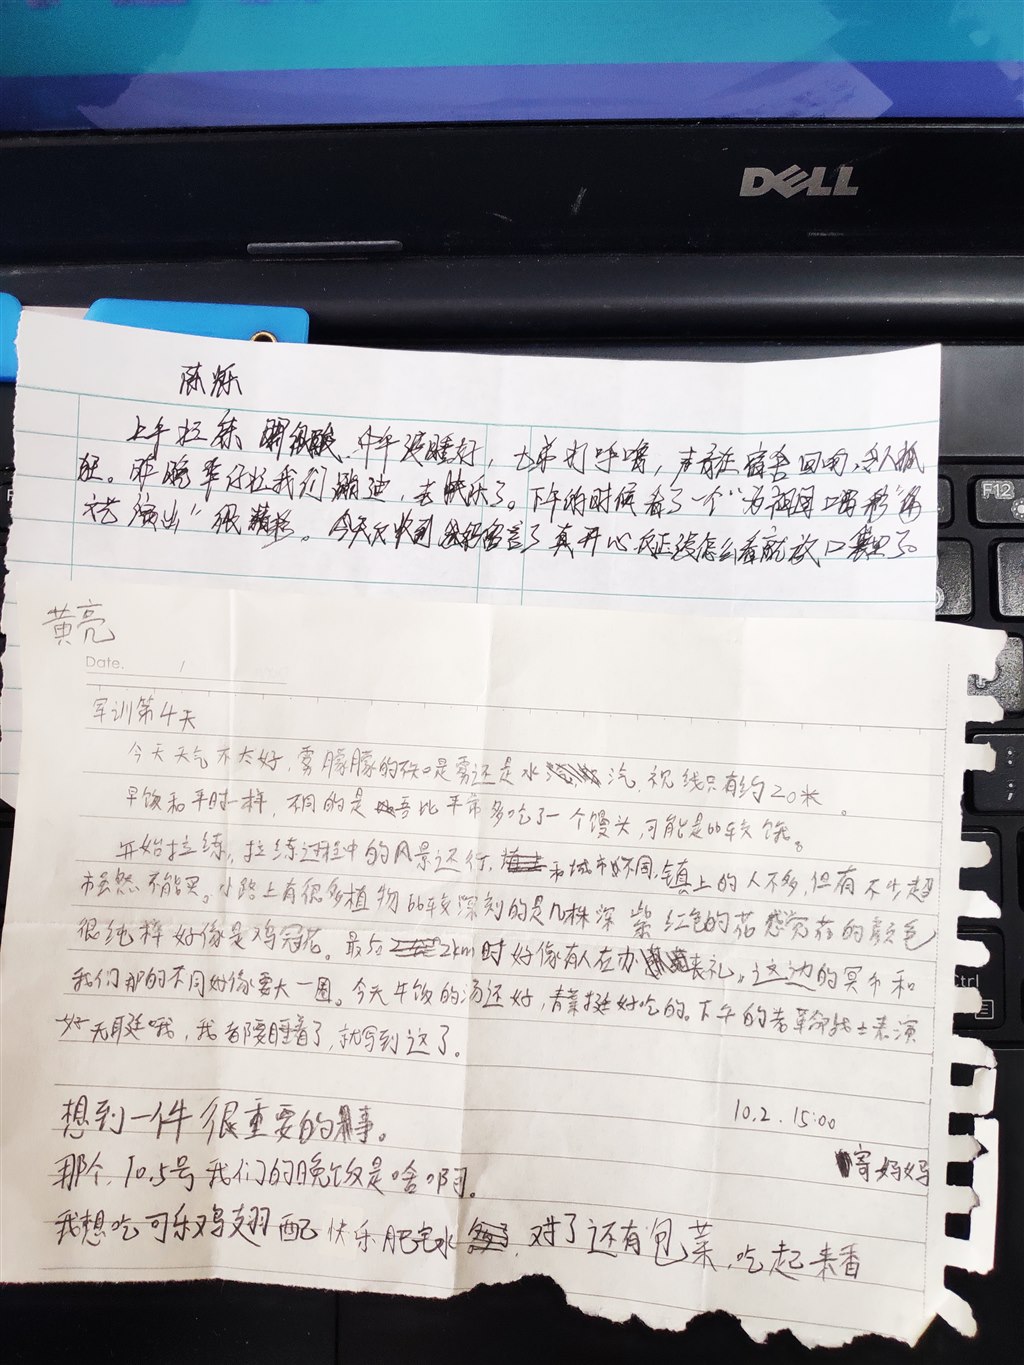 DELL
F12
陈烁
上午拉练 中午没睡好，大弟打呼噜，声音在宿舍回响，令人抓
狂。昨晚 我们蹦迪，去快乐了。下午的时候看了一个“为祖国喝彩
演出”很精彩。今天又收到 留言了真开心 反正没怎么看就放口袋里了。
黄亮
Date. /
军训第4天
今天天气不太好，雾朦朦的 是雾还是水 汽，视线只有约20米。
早饭和平时一样，不同的是 比平常多吃了一个馒头，可能是比较饿。
开始拉练，拉练过程中的风景还行， 和城市不同，镇上的人不多，但有不少超
市虽然不能买。小路上有很多植物比较深刻的是几株深紫红色的花感觉花的颜色
很纯粹好像是鸡冠花。最后 2km时好像有人在办 丧礼。这边的冥币和
我们那的不同好像要大一圈。今天午饭的汤还好，青菜挺好吃的。下午的老革命战士表演
好无聊哦，我都要睡着了，就写到这了。
10.2. 15:00
寄妈妈
想到一件很重要的事。
那个，10.5号我们的晚饭是啥啊。
我想吃可乐鸡翅配快乐肥宅水 ，对了还有包菜，吃起来香
Ctrl